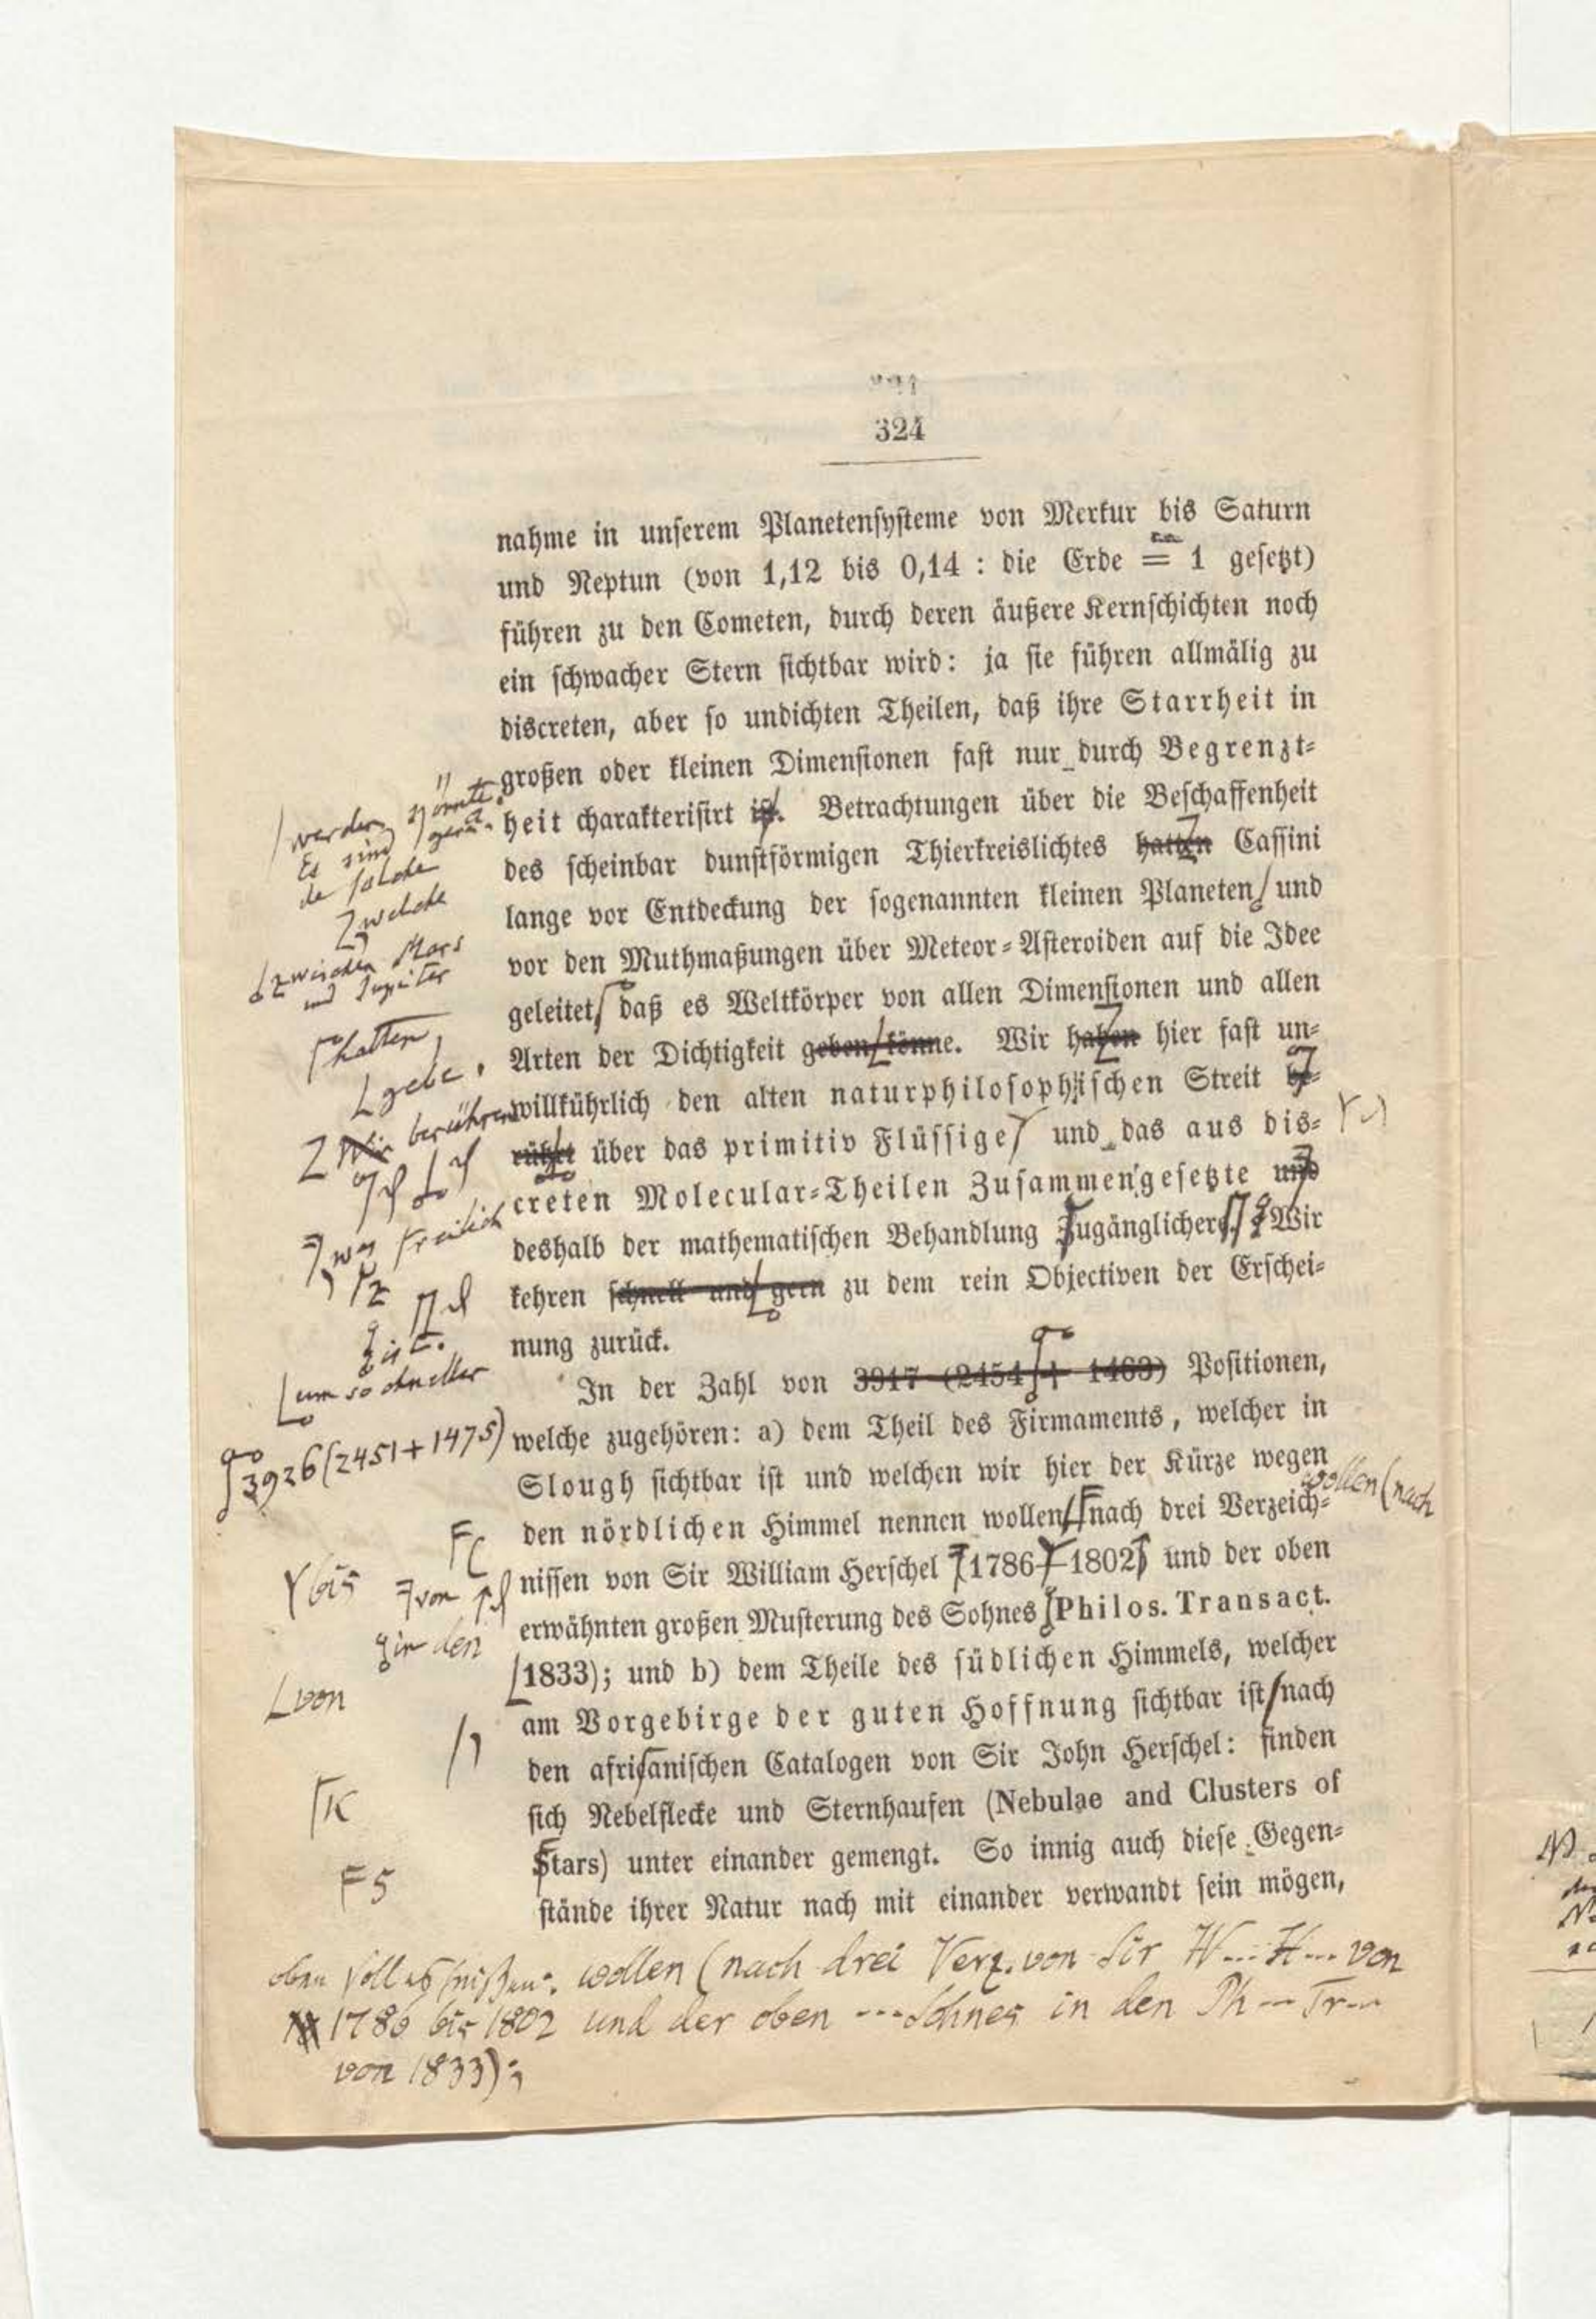 324
nahme in unserem Planetensysteme von Merkur bis Saturn
und Neptun (von 1,12 bis 0,14 : die Erde = 1 gesetzt)
führen zu den Cometen, durch deren äußere Kernschichten noch
ein schwacher Stern sichtbar wird: ja sie führen allmälig zu
discreten, aber so undichten Theilen, daß ihre Starrheit in
großen oder kleinen Dimensionen fast nur durch Begrenzt-
heit charakterisirt ist. Betrachtungen über die Beschaffenheit
des scheinbar dunstförmigen Thierkreislichtes hatten Cassini
lange vor Entdeckung der sogenannten kleinen Planeten und
vor den Muthmaßungen über Meteor-Asteroiden auf die Idee
geleitet, daß es Weltkörper von allen Dimensionen und allen
Arten der Dichtigkeit geben könne. Wir haben hier fast un-
willkührlich den alten naturphilosophischen Streit be-
rührt über das primitiv Flüssige und das aus dis-
creten Molecular-Theilen Zusammengesetzte und
deshalb der mathematischen Behandlung Zugänglichere. Wir
kehren schnell und gern zu dem rein Objectiven der Erschei-
nung zurück.
In der Zahl von 3917 (2454 + 1463) Positionen,
welche zugehören: a) dem Theil des Firmaments, welcher in
Slough sichtbar ist und welchen wir hier der Kürze wegen
den nördlichen Himmel nennen wollen nach drei Verzeich-
nissen von Sir William Herschel (1786–1802) und der oben
erwähnten großen Musterung des Sohnes (Philos. Transact.
1833); und b) dem Theile des südlichen Himmels, welcher
am Vorgebirge der guten Hoffnung sichtbar ist nach
den africanischen Catalogen von Sir John Herschel: finden
sich Nebelflecke und Sternhaufen (Nebulae and Clusters of
Stars) unter einander gemengt. So innig auch diese Gegen-
stände ihrer Natur nach mit einander verwandt sein mögen,
werden könnte.
Es sind gera-
de solche
welche
zwischen Mars
und Jupiter
hatten
gebe.
Wir berühren
was freilich
z
ist.
um so schneller
3926 (2451+1475)
wollen (nach
(
bis von
in den
von
,
k
S
wollen (nach drei Verz. von Sir W... H... von
1786 bis 1802 und der oben --- Sohnes in den Ph--- Tr---
von 1833);